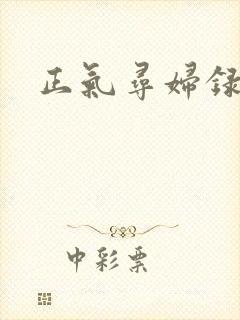 正氣尋婦録
中彩票